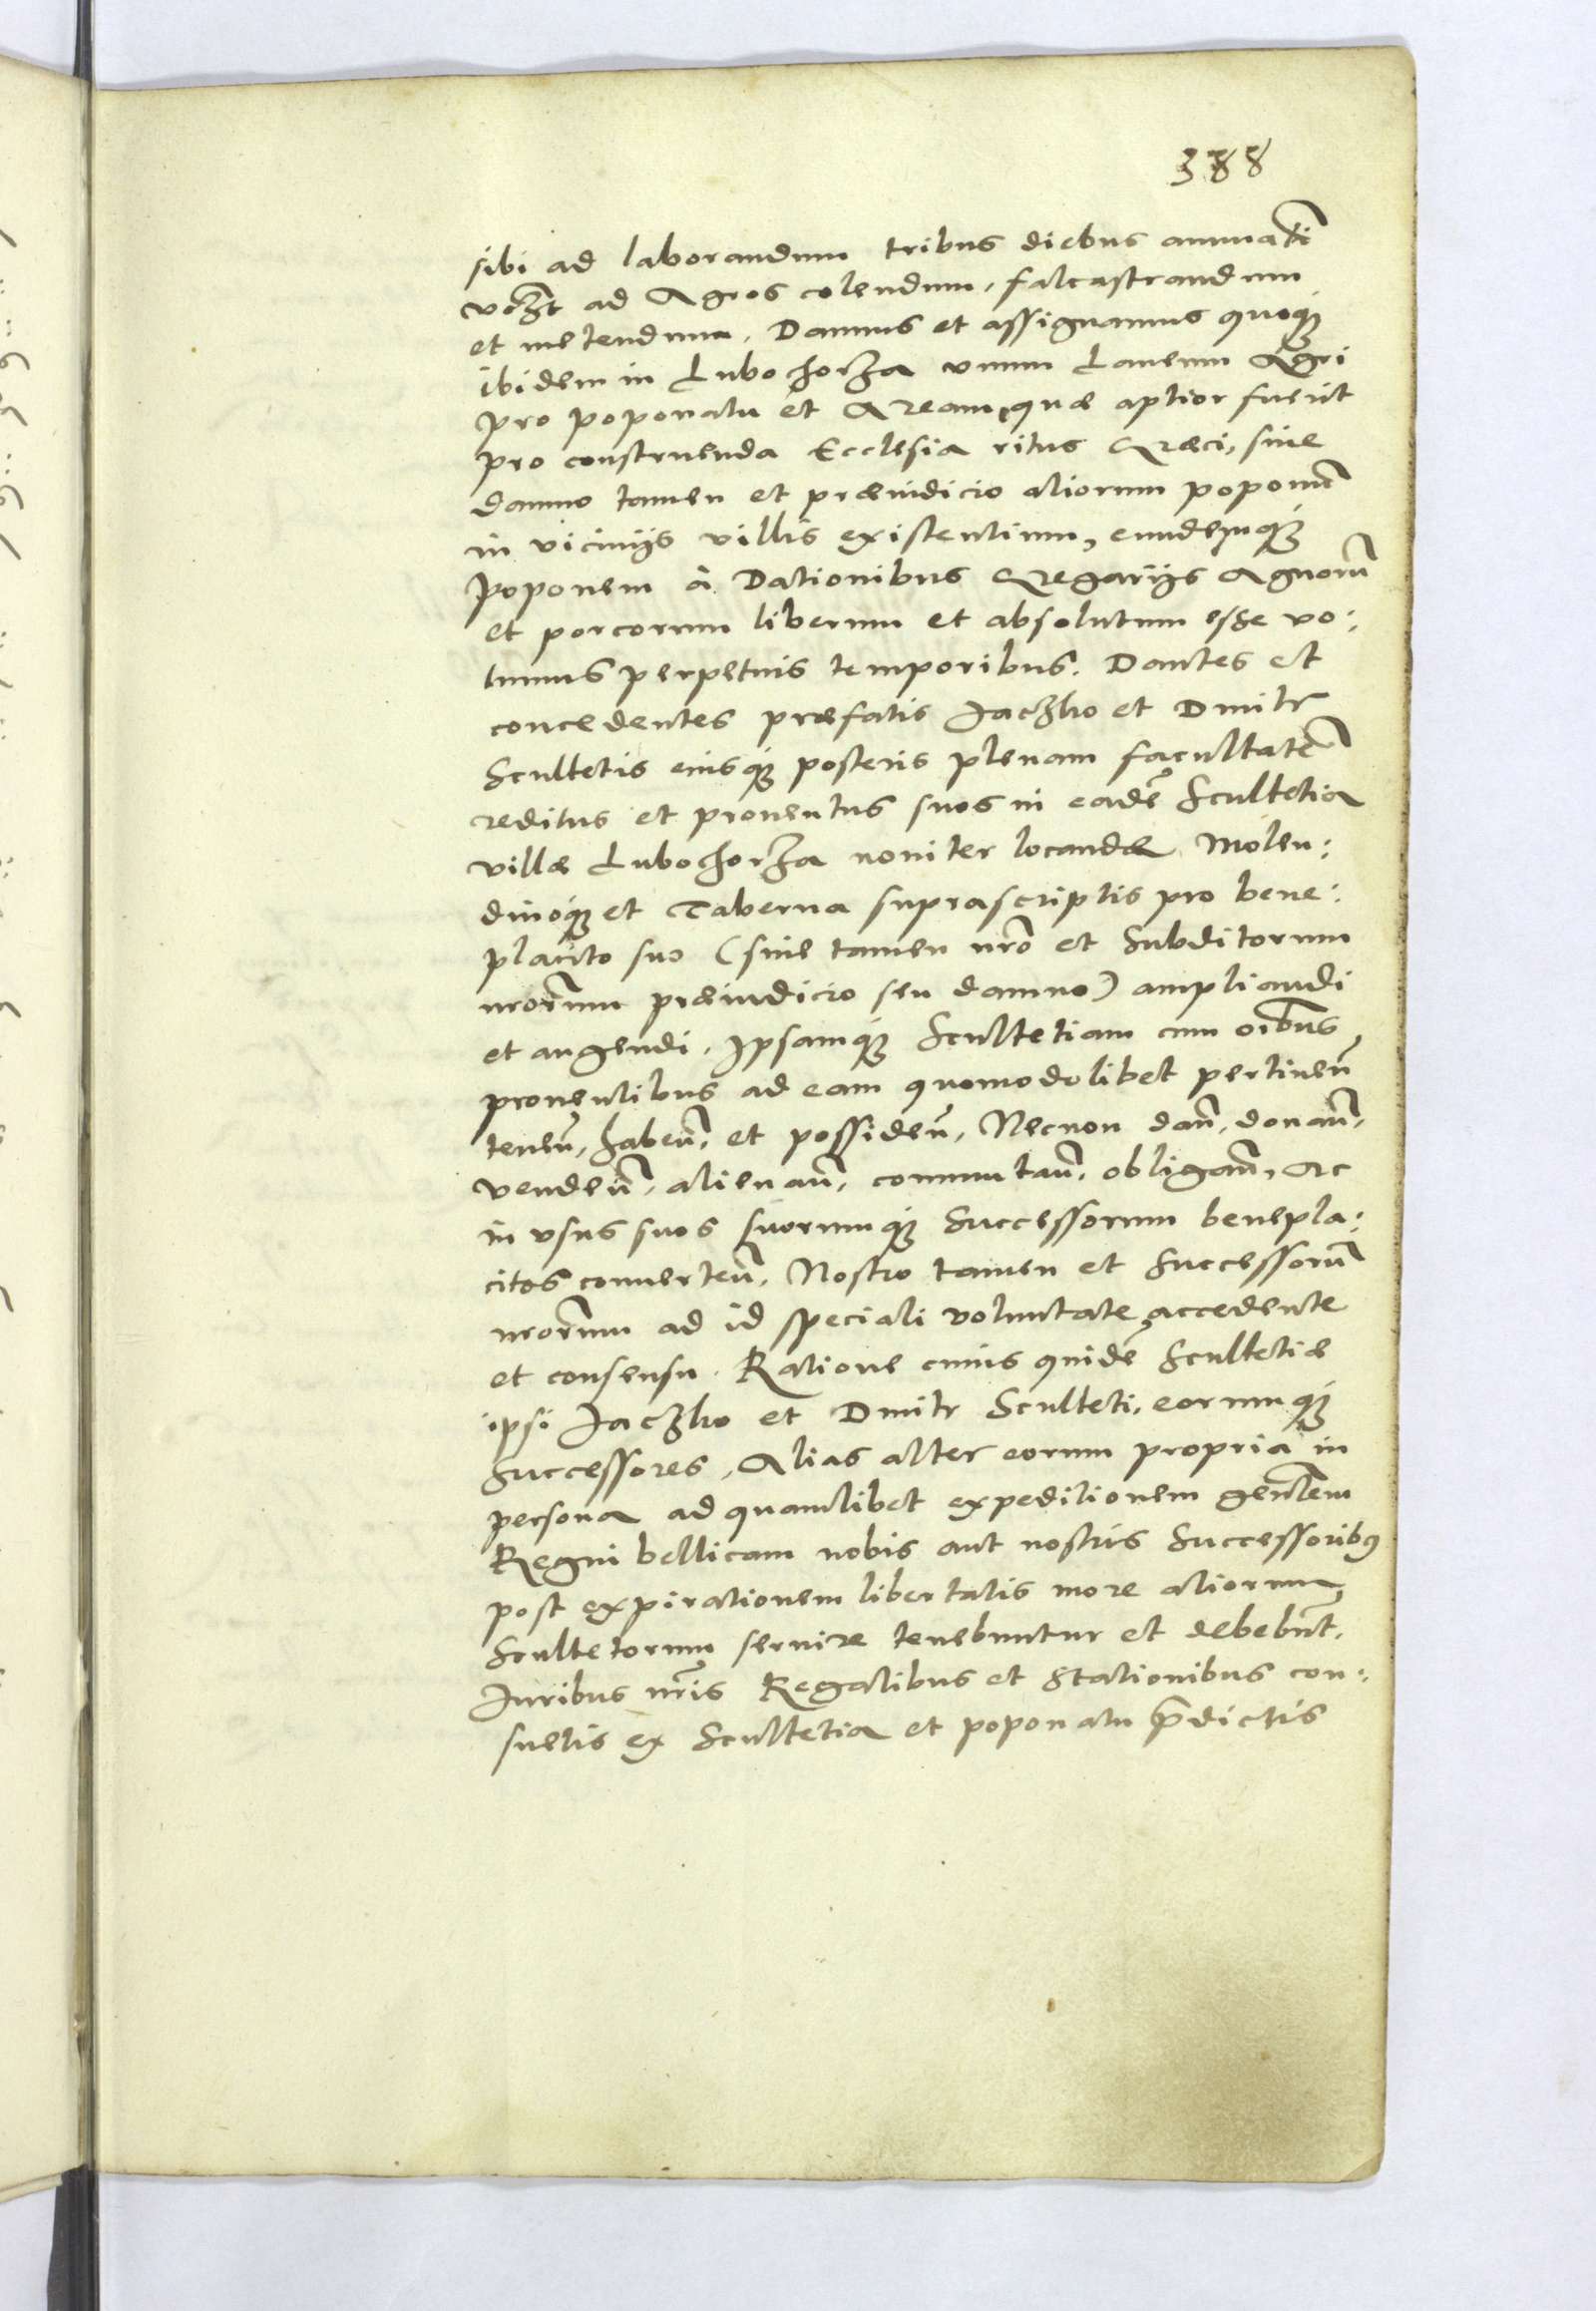 388
sibi ad laborandum tribus diebus annuatī
vcꝫt ad Agros colendum, falcastrandum
et metendum. Damus et assignamus quoqꝫ
ibidem in Lubochorza vnum Laneum Agri
pro poponatu et Aream, quæ aptior fuerit
pro construenda Ecclesia ritus Græci, sine
damno tamen et præiudicio aliorum poponū
in vicinijs villis existentium, eundemqꝫ
poponem à Dationibus Gregarijs Agnorū
et porcorum liberum et absolutum esse vo:
lumus perpetuis temporibus. Dantes et
concedentes præfatis Jaczko et Dmitr
Scultetis eiusqꝫ posteris plenam facultatē
reditus et prouentus suos in eadē Scultetia
villæ Lubochorza nouiter locandæ Molen:
dinoqꝫ et Taberna suprascriptis pro bene:
placito suo (sine tamen nr̄o et Subditorum
nrōrum præiudicio seu damno) ampliandi
et augendi. Ipsamqꝫ Scultetiam cum oībus
prouentibus ad eam quomodolibet pertineñ
teneñ, habeñ, et possideñ, Necnon dañ, donañ,
vendeñ, alienañ, commutañ, obligañ, Ac
in vsus suos suorumqꝫ Successorum benepla:
citos conuerteñ, Nostro tamen et Successorū
nrōrum ad id speciali voluntate accedente
et consensu. Ratione cuius quidē Scultetiæ
ipsi Jaczko et Dmitr Sculteti, eorumqꝫ
Successores, Alias alter eorum propria in
persona ad quamlibet expeditionem gen̄lem
Regni bellicam nobis aut nostris Successoribꝯ
post expirationem libertatis more aliorum
Scultetorum seruire tenebuntur et debebūt.
Iuribus nr̄is Regalibus et Stationibus con:
suetis ex Scultetia et poponatu p̄dictis